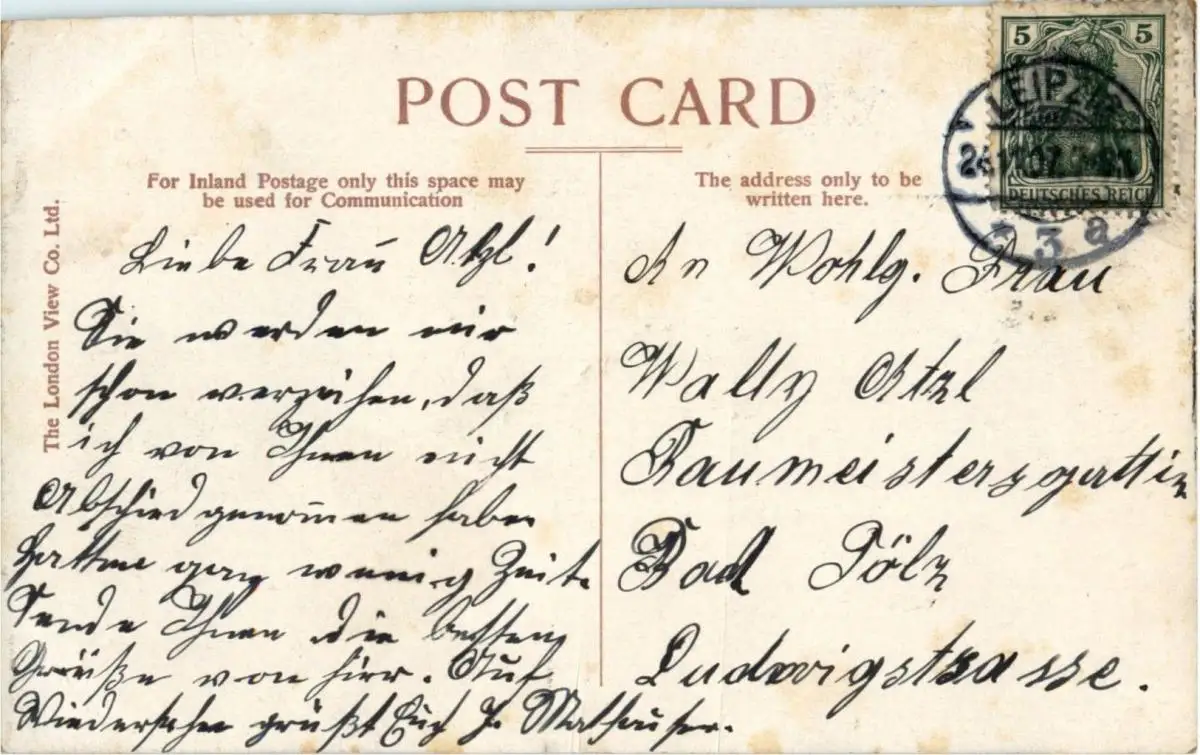 POST CARD
For Inland Postage only this space may
be used for Communication
The address only to be
written here.
The London View Co. Ltd.
5 5
DEUTSCHES REICH
LEIPZIG
3 a
Liebe Frau Atzl!
Sie werden mir
schon verzeihen, daß
ich von Ihnen nicht
Abschied genom̄en habe
Hatte ganz wenig Zeit.
Sende Ihnen die besten
Grüße von hier. Auf
Wiedersehn grüßt Euch
An Wohlg. Frau
Wally Atzl
Baumeistersgattin
Bad Tölz
Ludwigstrasse.